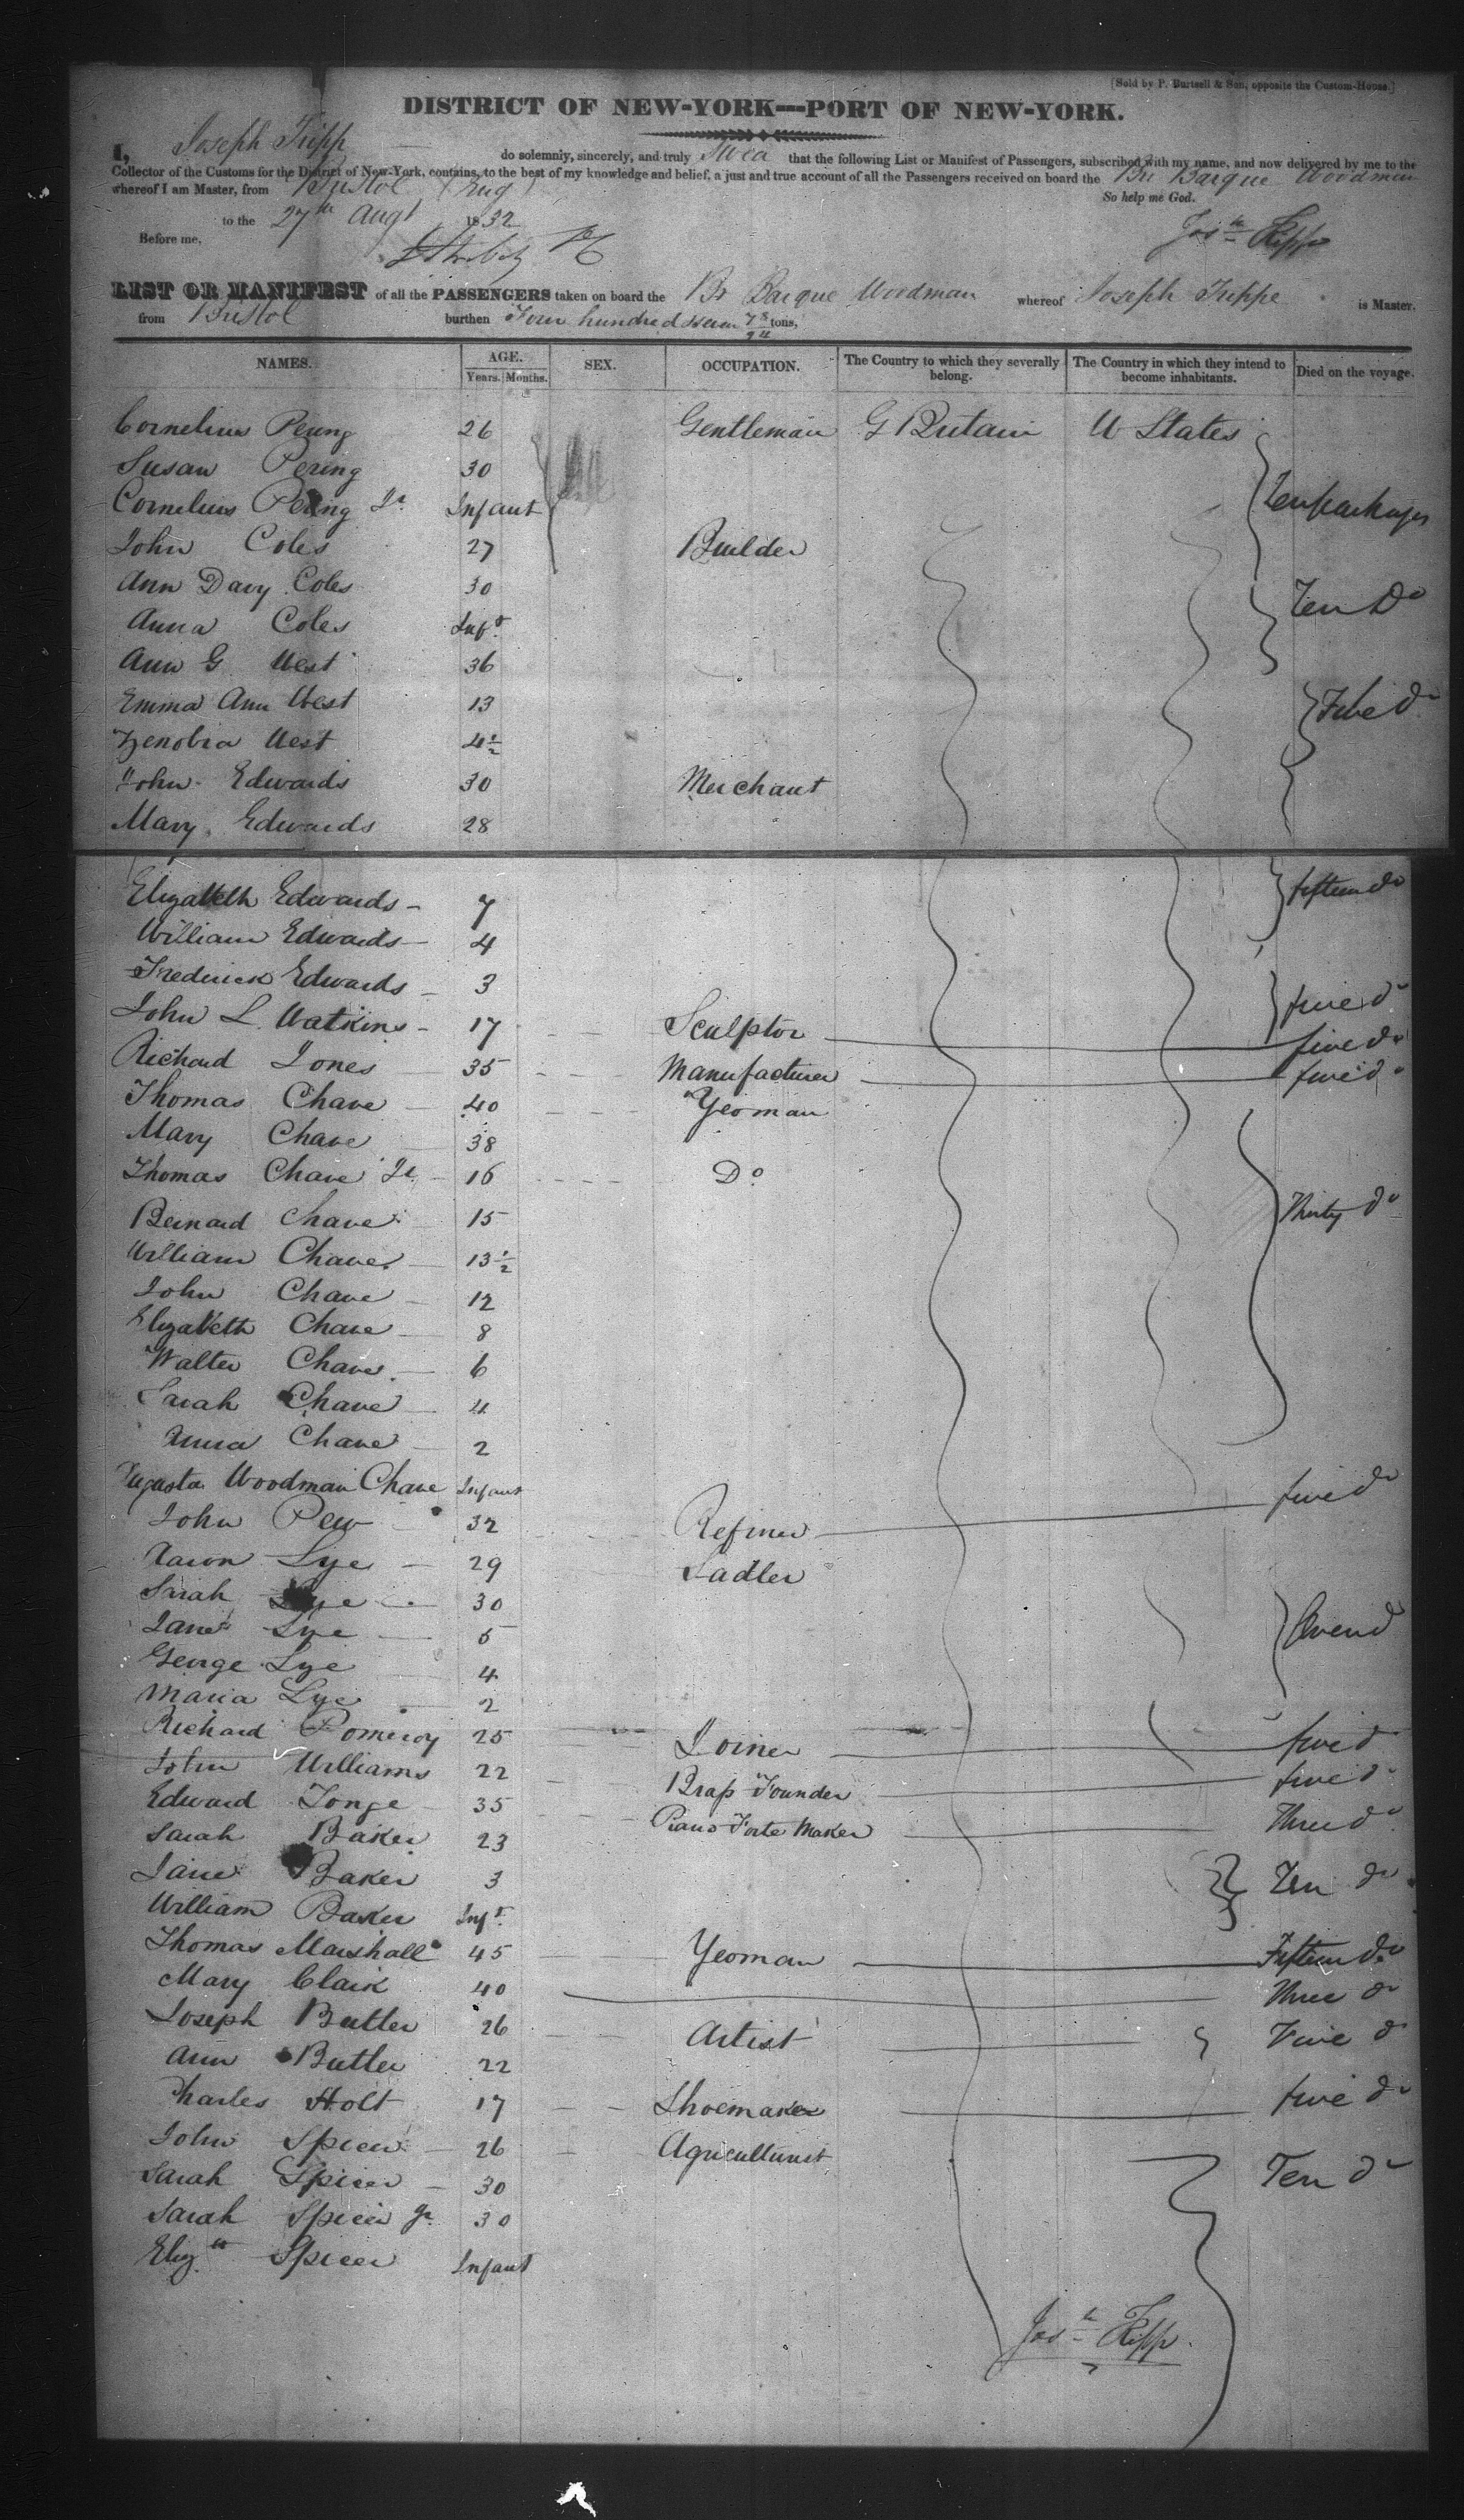 [Sold by P. Burtsell & Son, opposite the Custom-House.]
DISTRICT OF NEW-YORK—PORT OF NEW-YORK.
I, Joseph Tripp do solemnly, sincerely, and truly Swea that the following List or Manifest of Passengers, subscribed with my name, and now delivered by me to the
Collector of the Customs for the District of New-York, contains, to the best of my knowledge and belief, a just and true account of all the Passengers received on board the Bri Barque Woodman
whereof I am Master, from Bristol (Eng)
So help me God.
to the 27th Augt 1832
Josh Tripp
Before me,
LIST OR MANIFEST of all the PASSENGERS taken on board the Br Barque Woodman whereof Joseph Trippe is Master.
from Bristol burthen Four hundred seven 78/94 tons,
NAMES. AGE. SEX. OCCUPATION. The Country to which they severally belong. The Country in which they intend to become inhabitants. Died on the voyage.
Years. Months.
Cornelius Pering 26 Gentleman G Britain U States
Susan Pering 30
Cornelius Pering Jr Infant Ten packages
John Coles 27 Builder
Ann Davy Coles 30 Ten Do
Anna Coles Inft
Ann G West 36
Emma Ann West 13 Five do
Zenobia West 4½
John Edwards 30 Merchant
Mary Edwards 28
Elizabeth Edwards 7 fifteen do
William Edwards 4
Frederick Edwards 3 five do
John L. Watkins 17 Sculptor five do
Richard Jones 35 Manufacturer five do
Thomas Chave 40 Yeoman
Mary Chave 38
Thomas Chave Jr 16 Do
Bernard Chave 15 Thirty do
William Chave 13½
John Chave 12
Elizabeth Chave 8
Walter Chave 6
Sarah Chave 4
Anna Chave 2
Augusta Woodman Chave Infant
John Pew 32 Refiner five do
Aaron Lye 29 Sadler
Sarah Lye 30
Jane Lye 5
George Lye 4
Maria Lye 2
Richard Pomeroy 25 Joiner five do
John Williams 22 Brass Founder five do
Edward Tonge 35 Piano Forte Maker Three do
Sarah Baker 23
Jane Baker 3 Ten do
William Baker Inft
Thomas Marshall 45 Yeoman Fifteen do
Mary Clark 40 Three do
Joseph Butler 26 Artist Five do
Ann Butler 22
Charles Holt 17 Shoemaker five do
John Spicer 26 Agriculturist
Sarah Spicer 30 Ten do
Sarah Spicer Jr 30
Elizth Spicer Infant
Josh Tripp